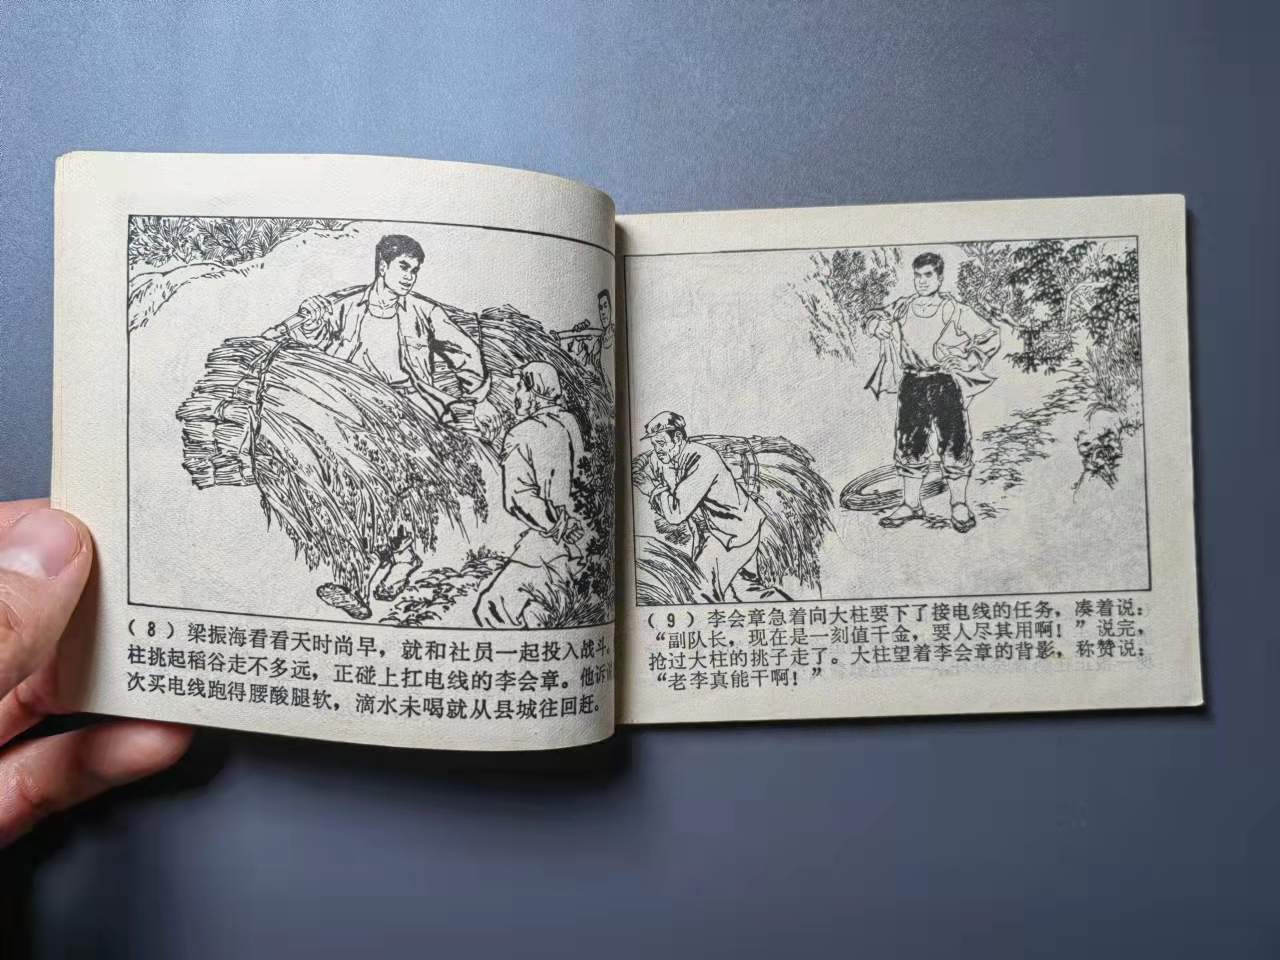 （8）梁振海看看天时尚早，就和社员一起投入战斗。
柱挑起稻谷走不多远，正碰上扛电线的李会章。他诉说
次买电线跑得腰酸腿软，滴水未喝就从县城往回赶。
（9）李会章急着向大柱要下了接电线的任务，凑着说：
“副队长，现在是一刻值千金，要人尽其用啊！”说完，
抢过大柱的挑子走了。大柱望着李会章的背影，称赞说：
“老李真能干啊！”